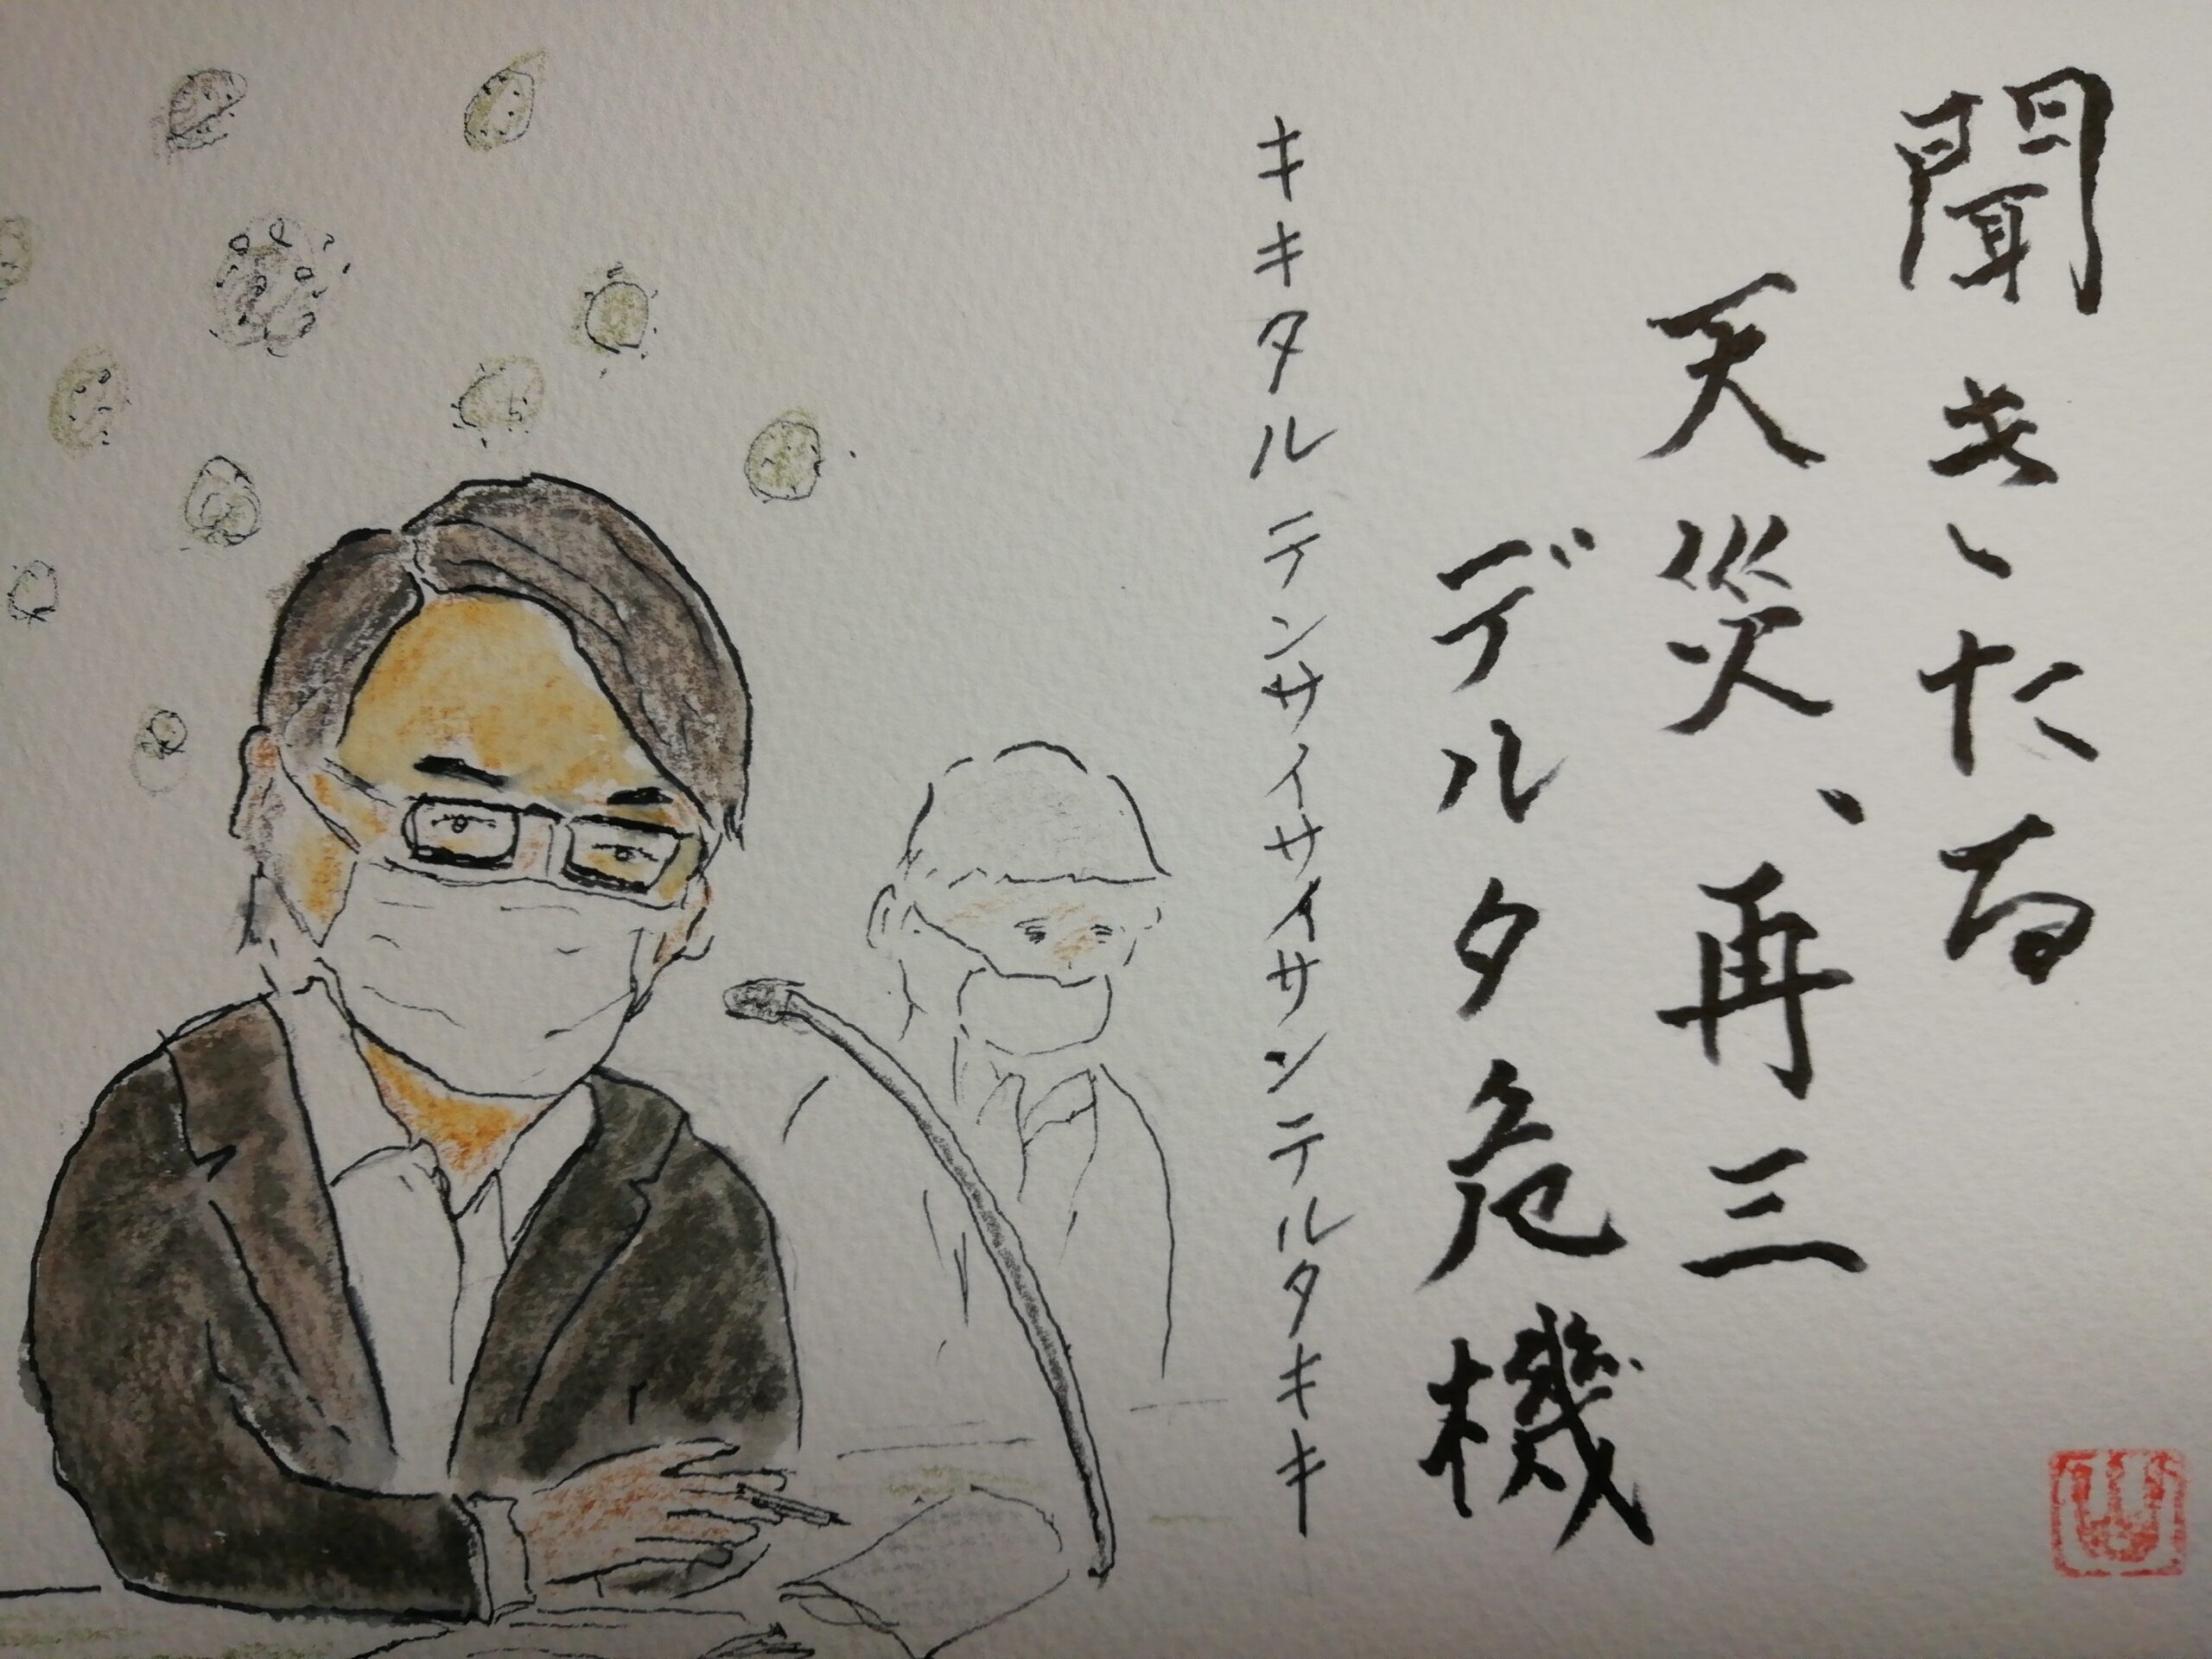 聞きたる
天災、再三
デルタ危機
キキタルテンサイサイサンテルタキキ